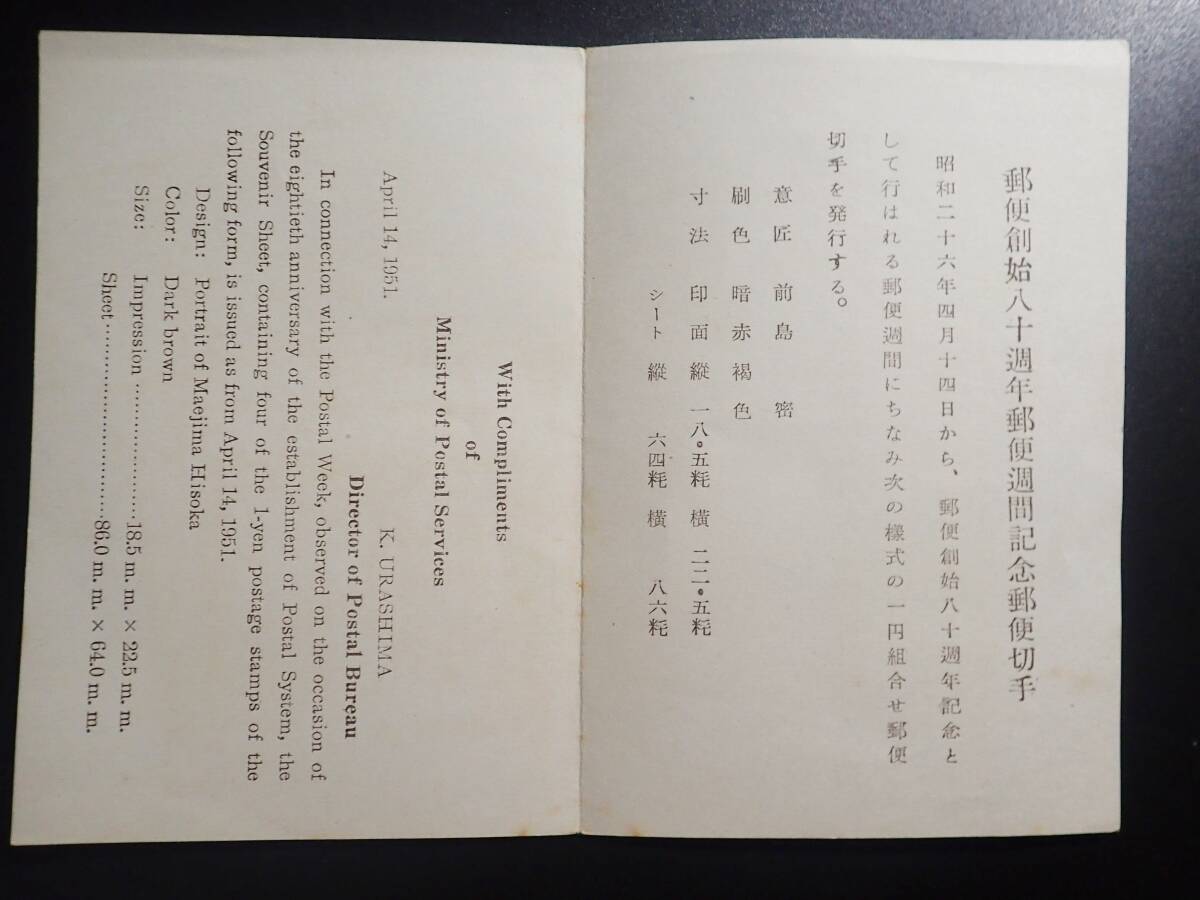 郵便創始八十週年郵便週間記念郵便切手
昭和二十六年四月十四日から、郵便創始八十週年記念と
して行はれる郵便週間にちなみ次の樣式の一円組合せ郵便
切手を発行する。
意匠 前島密
刷色 暗赤褐色
寸法 印面縱 一八・五粍 橫 二二・五粍
シート縱 六四粍 橫 八六粍
With Compliments
of
Ministry of Postal Services
April 14, 1951. K. URASHIMA
Director of Postal Bureau
In connection with the Postal Week, observed on the occasion of
the eightieth anniversary of the establishment of Postal System, the
Souvenir Sheet, containing four of the 1-yen postage stamps of the
following form, is issued as from April 14, 1951.
Design: Portrait of Maejima Hisoka
Color: Dark brown
Size: Impression .....................18.5 m. m. × 22.5 m. m.
Sheet..............................86.0 m. m. × 64.0 m. m.